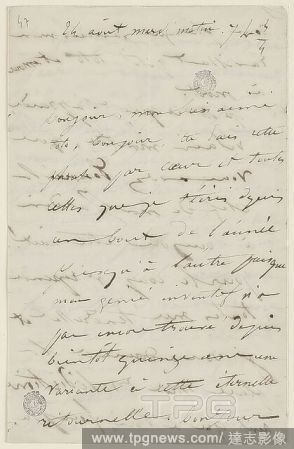 47
24 août mardi matin 7h ¾
Bonjour, mon bien aimé
toto, bonjour tu sais cette
phrase par cœur et toutes
celles que je t'écris depuis
un bout de l'année
jusqu'à l'autre puisque
mon génie inventif n'a
pas encore trouvé depuis
bientôt quinze ans une
variante à cette éternelle
ritournelle bonjour
TPG
www.tpgnews.com / 達志影像